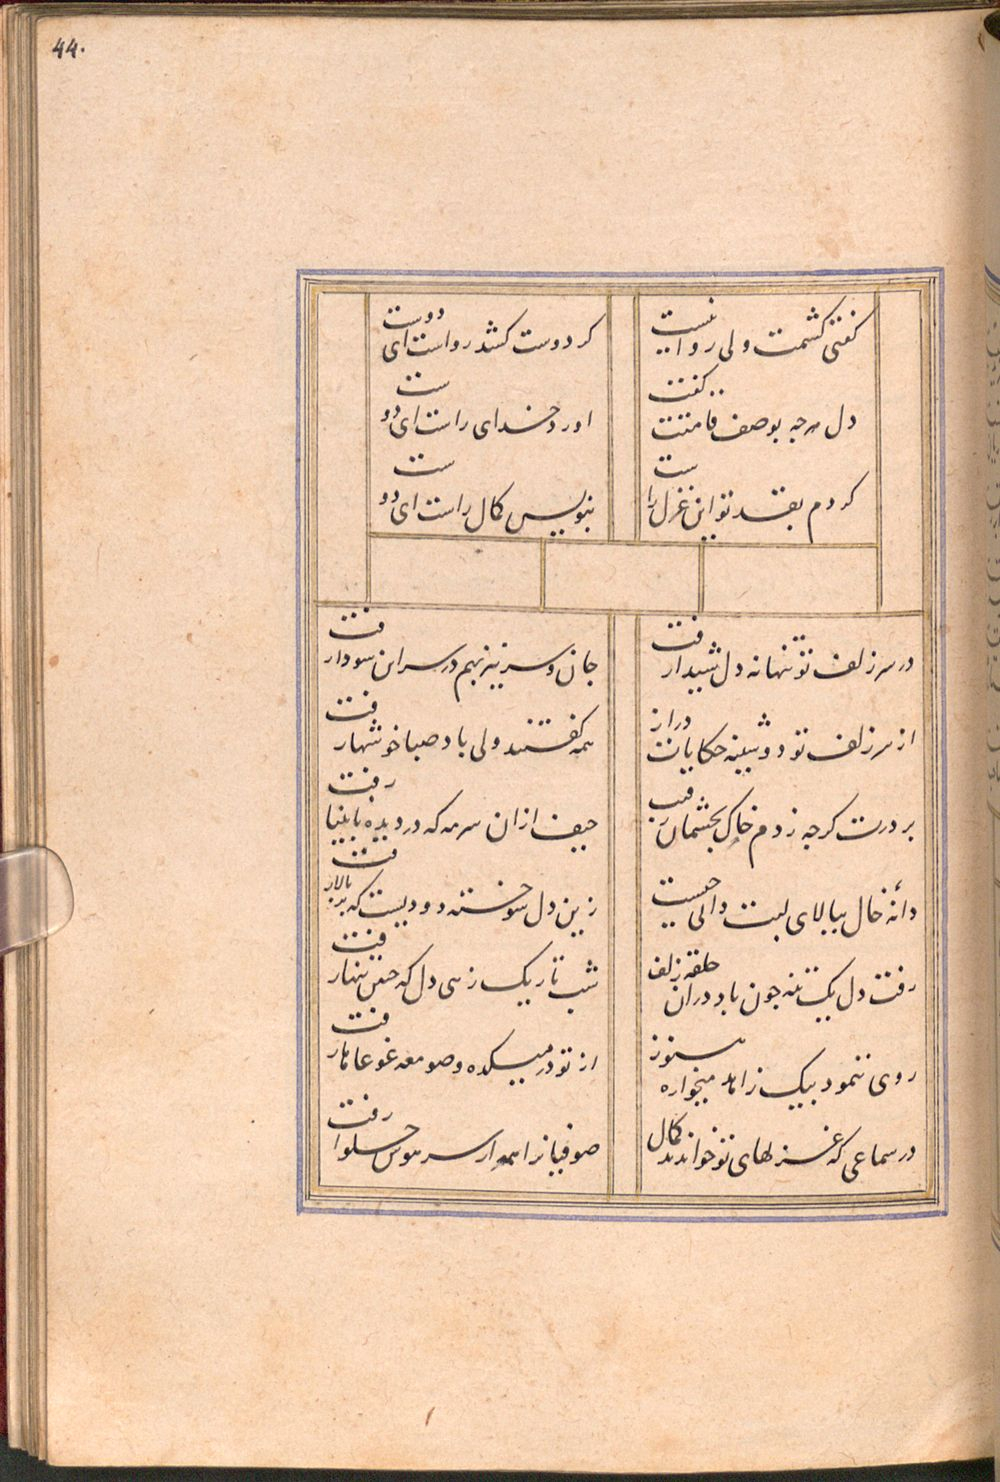 44.
گفتی کشمت ولی روا نیست
کر دوست کشد رواست ای دوست
دل هرچه بوصف قامتت گفت
اورد خدای راست ای دوست
کردم بقد تو این غزل را
بنویس کمال راست ای دوست
در سر زلف تو تنها نه دل شیدا رفت
جان و سر نیز نهم در سر این سودا رفت
از سر زلف تو دوشینه حکایات دراز
همه گفتند ولی باد صبا خوشها رفت
بر درت کرچه زدم خاک بچشمان رقیب
حیف ازان سرمه که در دیده نابینا رفت
دانه خال ببالای لبت دانی چیست
زین دل سوخته دودیست که بر بالا رفت
رفت دل یک تنه چون باد دران حلقه زلف
شب تاریک زهی دل که چنین تنها رفت
روی ننمود بیک زاهد میخواره هنوز
از تو در میکده و صومعه غوغاها رفت
در سماعی که غزلهای تو خواندند کمال
صوفیانرا همه از سر هوس حلوا رفت